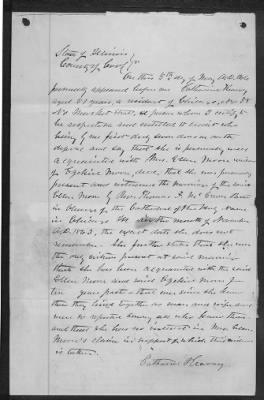 State of Illinois
County of Cook ss
On this 5th day of May A.D.
personally appeared before me Catharine Kearny
aged years, a resident of Chicago, No 58
Market Street, a person whom I certify to
be respectable and entitled to credit who
being by me first duly sworn doth on oath
depose and say that she is personally well
acquainted with Mrs. Ellen Moore widow
of Ezekiel Moore, dec'd, that she was personally
present and witnessed the marriage of the said
Ellen Moore by Rev. Thomas
in Church of the Holy Name
in Chicago Ill in the month of November
A.D. 1863, the exact date she does not
remember. She further states that she was
the only witness present at said marriage
that she has been acquainted with the said
Ellen Moore and said Ezekiel Moore for
ten years past & that ever since she knew
them they lived together as man and wife and
were so reputed among all who knew them
and that she has no interest in Mrs. Ellen
Moore's claim in support of which this evidence
is taken.
Catharine Kearny